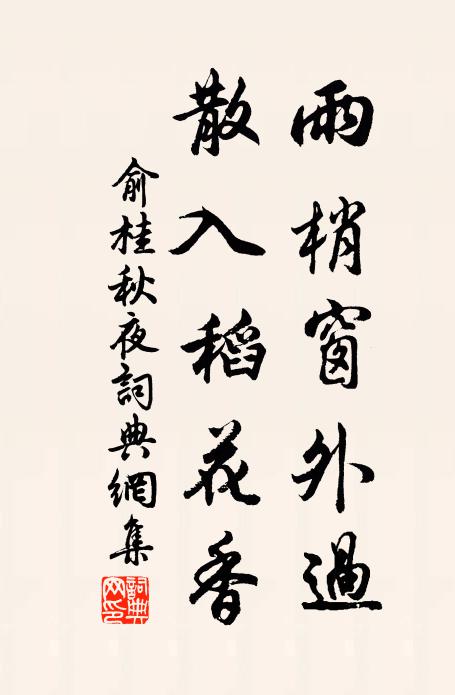 雨梢窗外過
散入稻花香
俞桂秋夜詞典網集
詞典網印